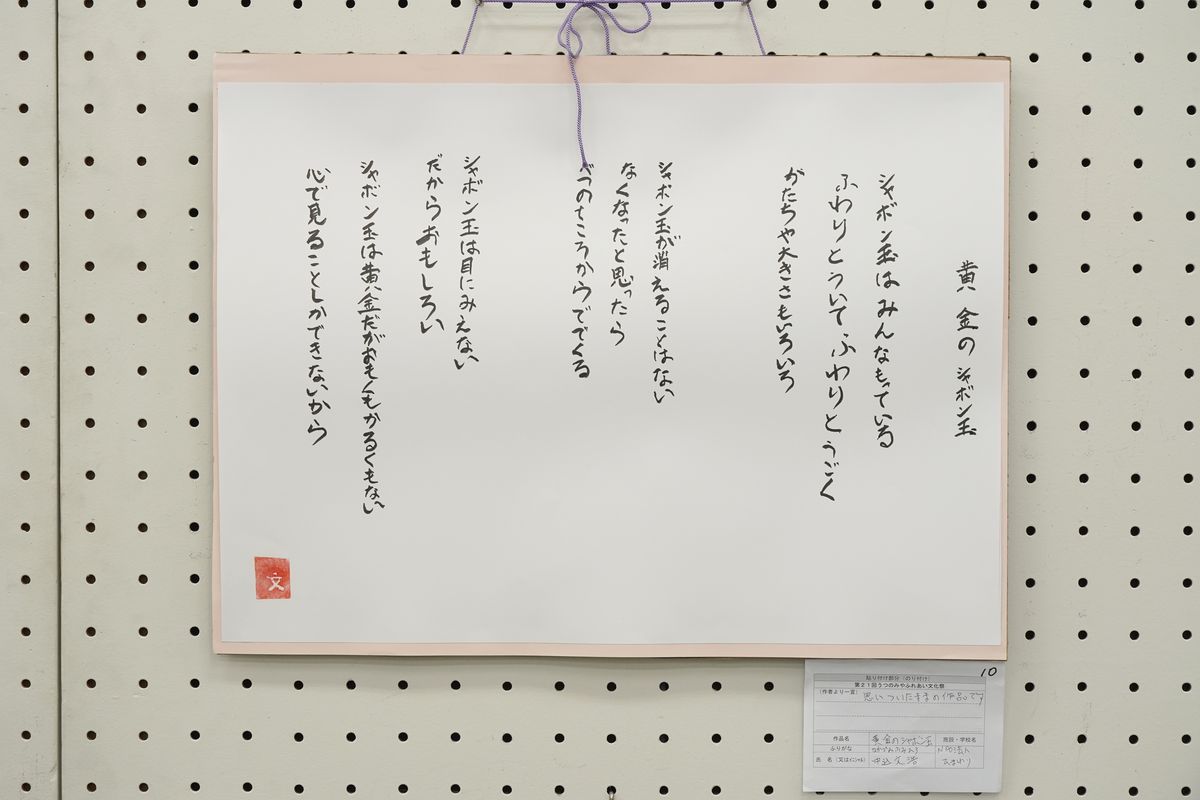 黄金のシャボン玉
シャボン玉はみんなもっている
ふわりとういてふわりとうごく
かたちや大きさもいろいろ
シャボン玉が消えることはない
なくなったと思ったら
べつのところからでてくる
シャボン玉は目にみえない
だからおもしろい
シャボン玉は黄金だがおもくもかるくもない
心で見ることしかできないから
文
10
貼り付け部分(のり付け)
第21回うつのみやふれあい文化祭
(作者より一言) 思いついたままの作品です
作品名 黄金のシャボン玉 施設・学校名
ふりがな NPO法人
氏 名(又はイニシャル) 中込文浩 ひまわり